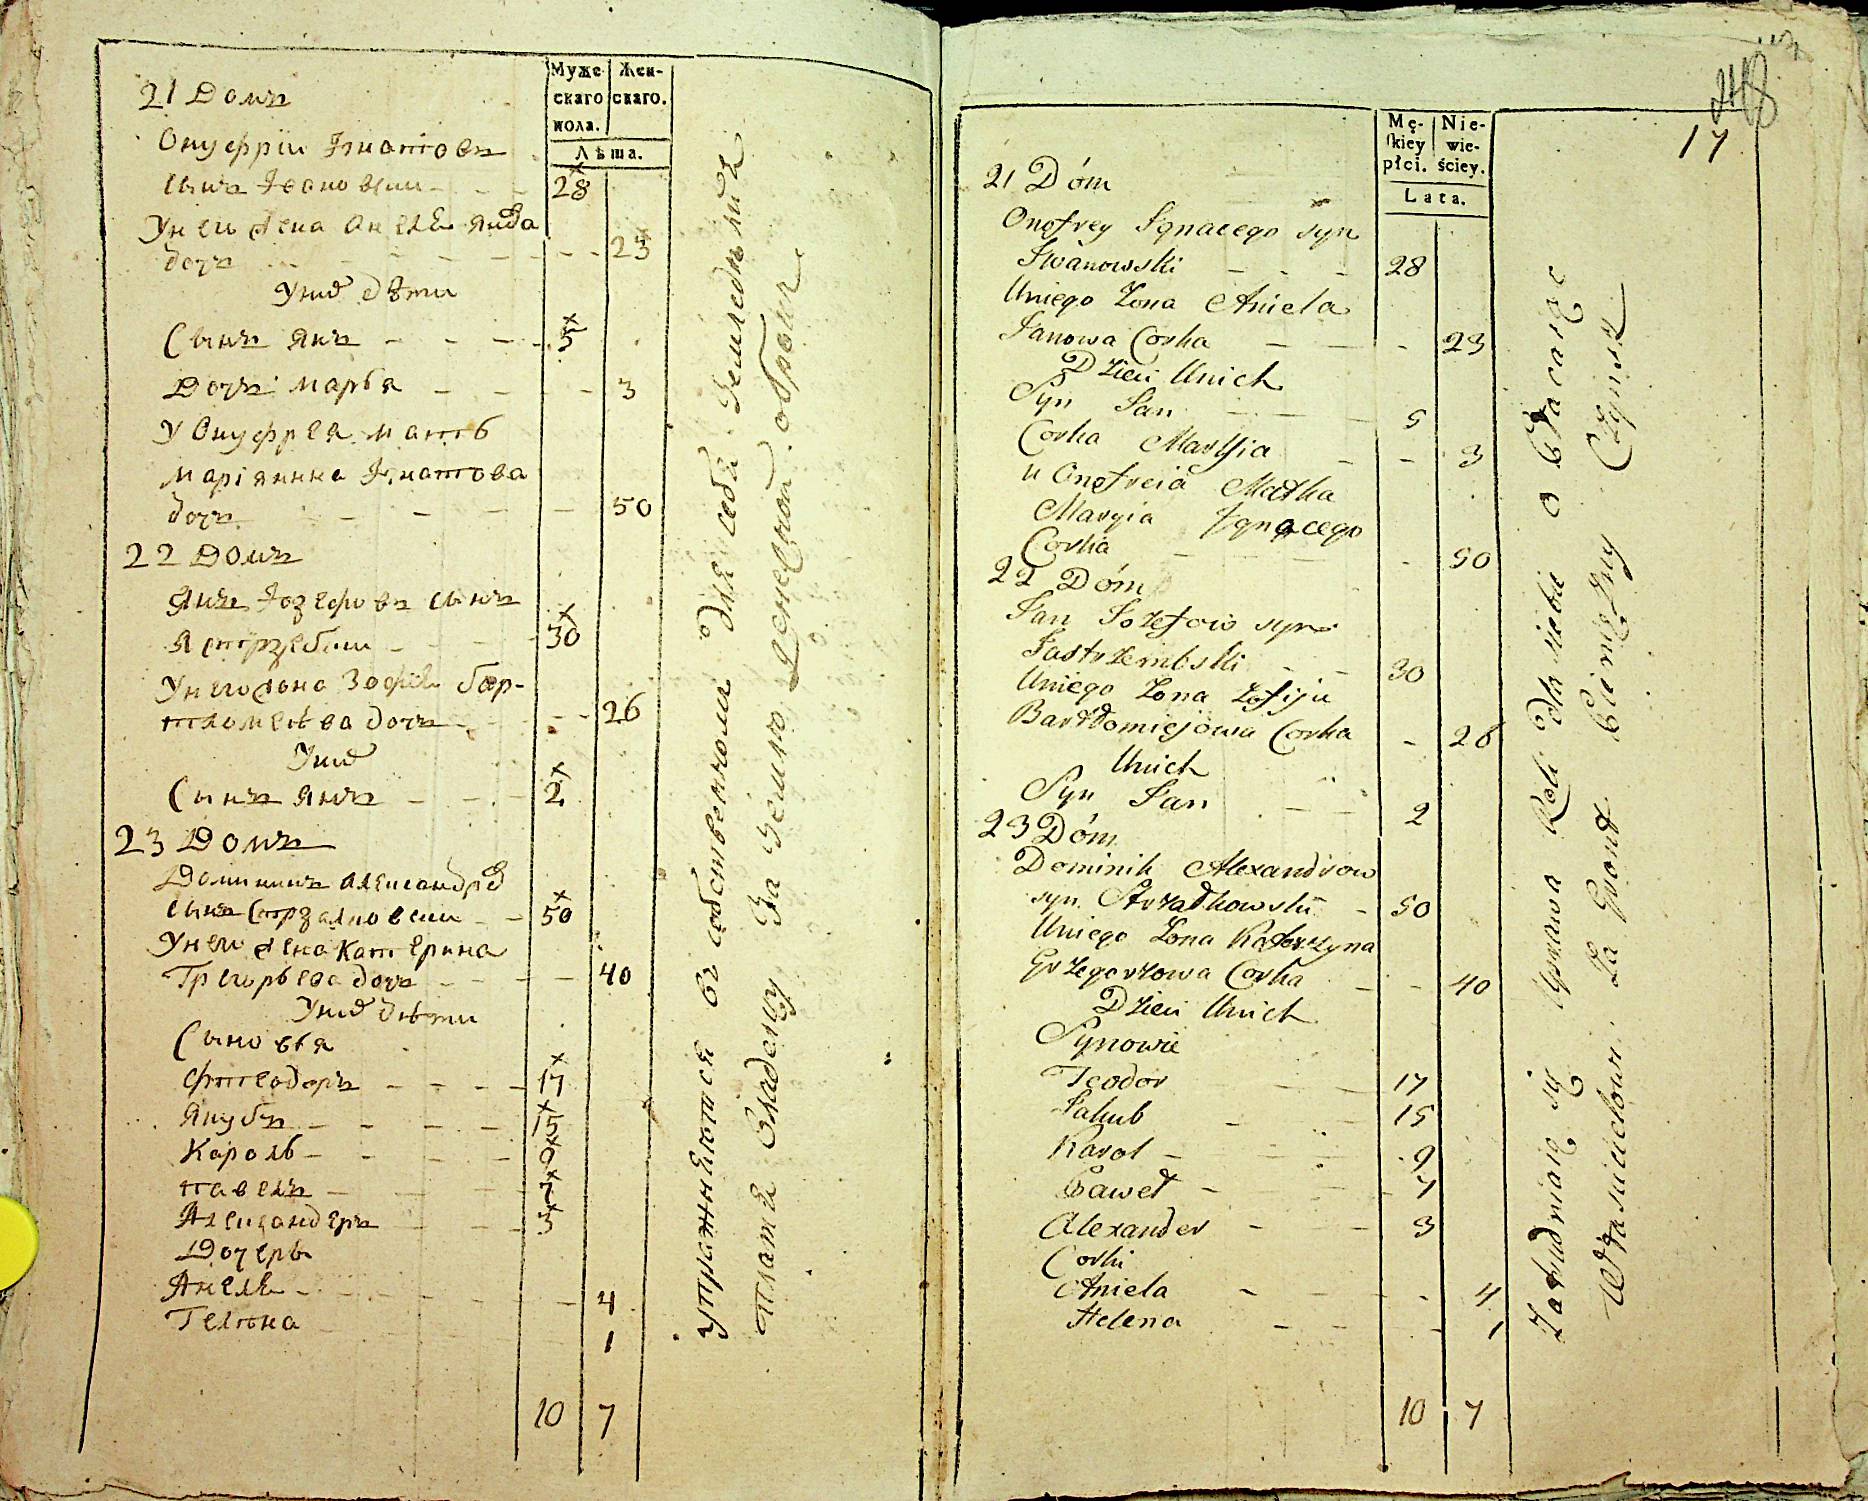 Муже-
скаго
пола.
Жен-
скаго.
Лѣта.
21 Домъ
Онуфрій Игнатовъ
сынъ Ивановскій - - - 28
Унего жена Анеля Янова
дочь - - - 23
Унихъ дѣти
Сынъ Янъ - - - 5
Дочь Марья - - - 3
У Онуфрея мать
Маріянна Игнатова
дочь - - - 50
22 Домъ
Янъ Іозефовъ сынъ
Ястржебски - - - 30
Унего жена Зофія Бар-
тломеева дочь - - - 26
Унихъ
Сынъ Янъ - - - 2
23 Домъ
Доминикъ Александров
сынъ Стржалковски - - 50
Унего жена Катерина
Грегорьева дочь - - - 40
Унихъ дѣти
Сыновья
Фтеодоръ - - - 17
Якубъ - - - 15
Кароль - - - 9
Павелъ - - - 7
Александеръ - - - 3
Дочеры
Анеля - - - 4
Гелѣна 1
10 7
упражняются въ собственномъ для себя земледѣліи
платя владельцу за землю денежной оброкъ
248
17
Mę-
skiey
płci.
Nie-
wie-
ściey.
Lata.
21 Dóm
Onofrey Ignacego syn
Iwanowski - - - 28
Uniego Zona Aniela
Janowa Corka - - - 23
Dzieci Unich
Syn Jan - - - 5
Corka Maryia - - - 3
u Onofreia Matka
Maryia Ignacego
Corka - - - 50
22 Dóm
Jan Jozefow syn
Jastrzembski - - 30
Uniego Zona Zofija
Bartłomiejowa Corka - 26
Unich
Syn Jan - - 2
23 Dóm
Dominik Alexandrow
syn Strzałkowski - 50
Uniego Zona Katarzyna
Grzegorzowa Corka - - 40
Dzieci Unich
Synowie
Teodor - - 17
Jakub - - - 15
Karol - - - 9
Paweł - - - 7
Alexander - - 3
Corki
Aniela - - - 4
Helena - - - 1
10 7
Zatrudniaię się Uprawa Roli dla siebie opłacaiąc
Właścicielowi Za Gront Pieniężny Czynsz